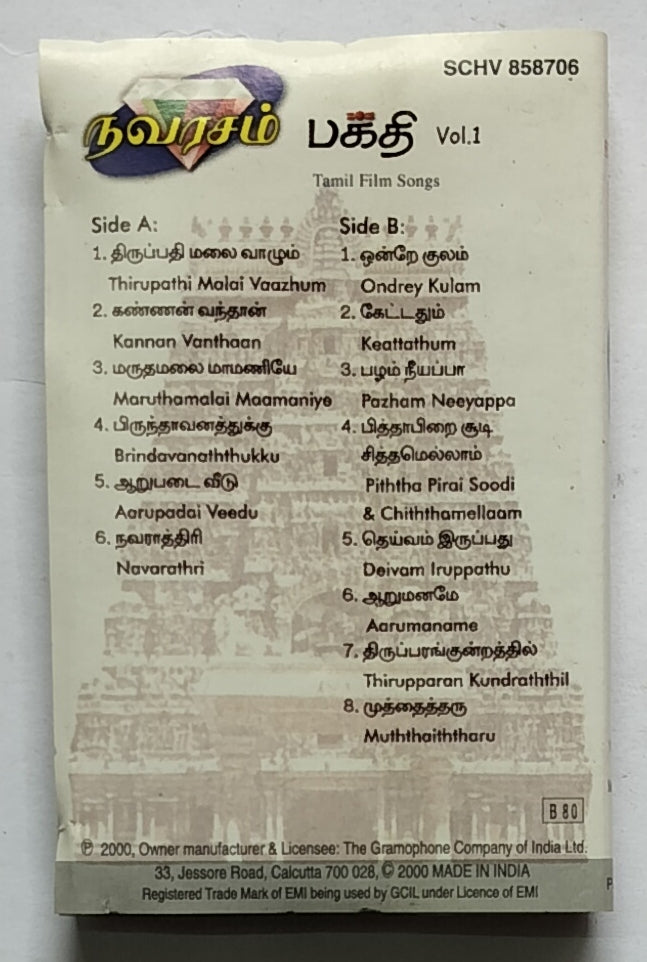 SCHV 858706
நவரசம்
பக்தி Vol.1
Tamil Film Songs
Side A:
1. திருப்பதி மலை வாழும்
Thirupathi Malai Vaazhum
2. கண்ணன் வந்தான்
Kannan Vanthaan
3. மருதமலை மாமணியே
Maruthamalai Maamaniye
4. பிருந்தாவனத்துக்கு
Brindavanaththukku
5. ஆறுபடை வீடு
Aarupadai Veedu
6. நவராத்திரி
Navarathri
Side B:
1. ஒன்றே குலம்
Ondrey Kulam
2. கேட்டதும்
Keattathum
3. பழம் நீயப்பா
Pazham Neeyappa
4. பித்தாபிறை சூடி
சித்தமெல்லாம்
Piththa Pirai Soodi
& Chiththamellaam
5. தெய்வம் இருப்பது
Deivam Iruppathu
6. ஆறுமனமே
Aarumaname
7. திருப்பரங்குன்றத்தில்
Thirupparan Kundraththil
8. முத்தைத்தரு
Muththaiththaru
B 80
℗ 2000, Owner manufacturer & Licensee: The Gramophone Company of India Ltd.
33, Jessore Road, Calcutta 700 028, © 2000 MADE IN INDIA
Registered Trade Mark of EMI being used by GCIL under Licence of EMI